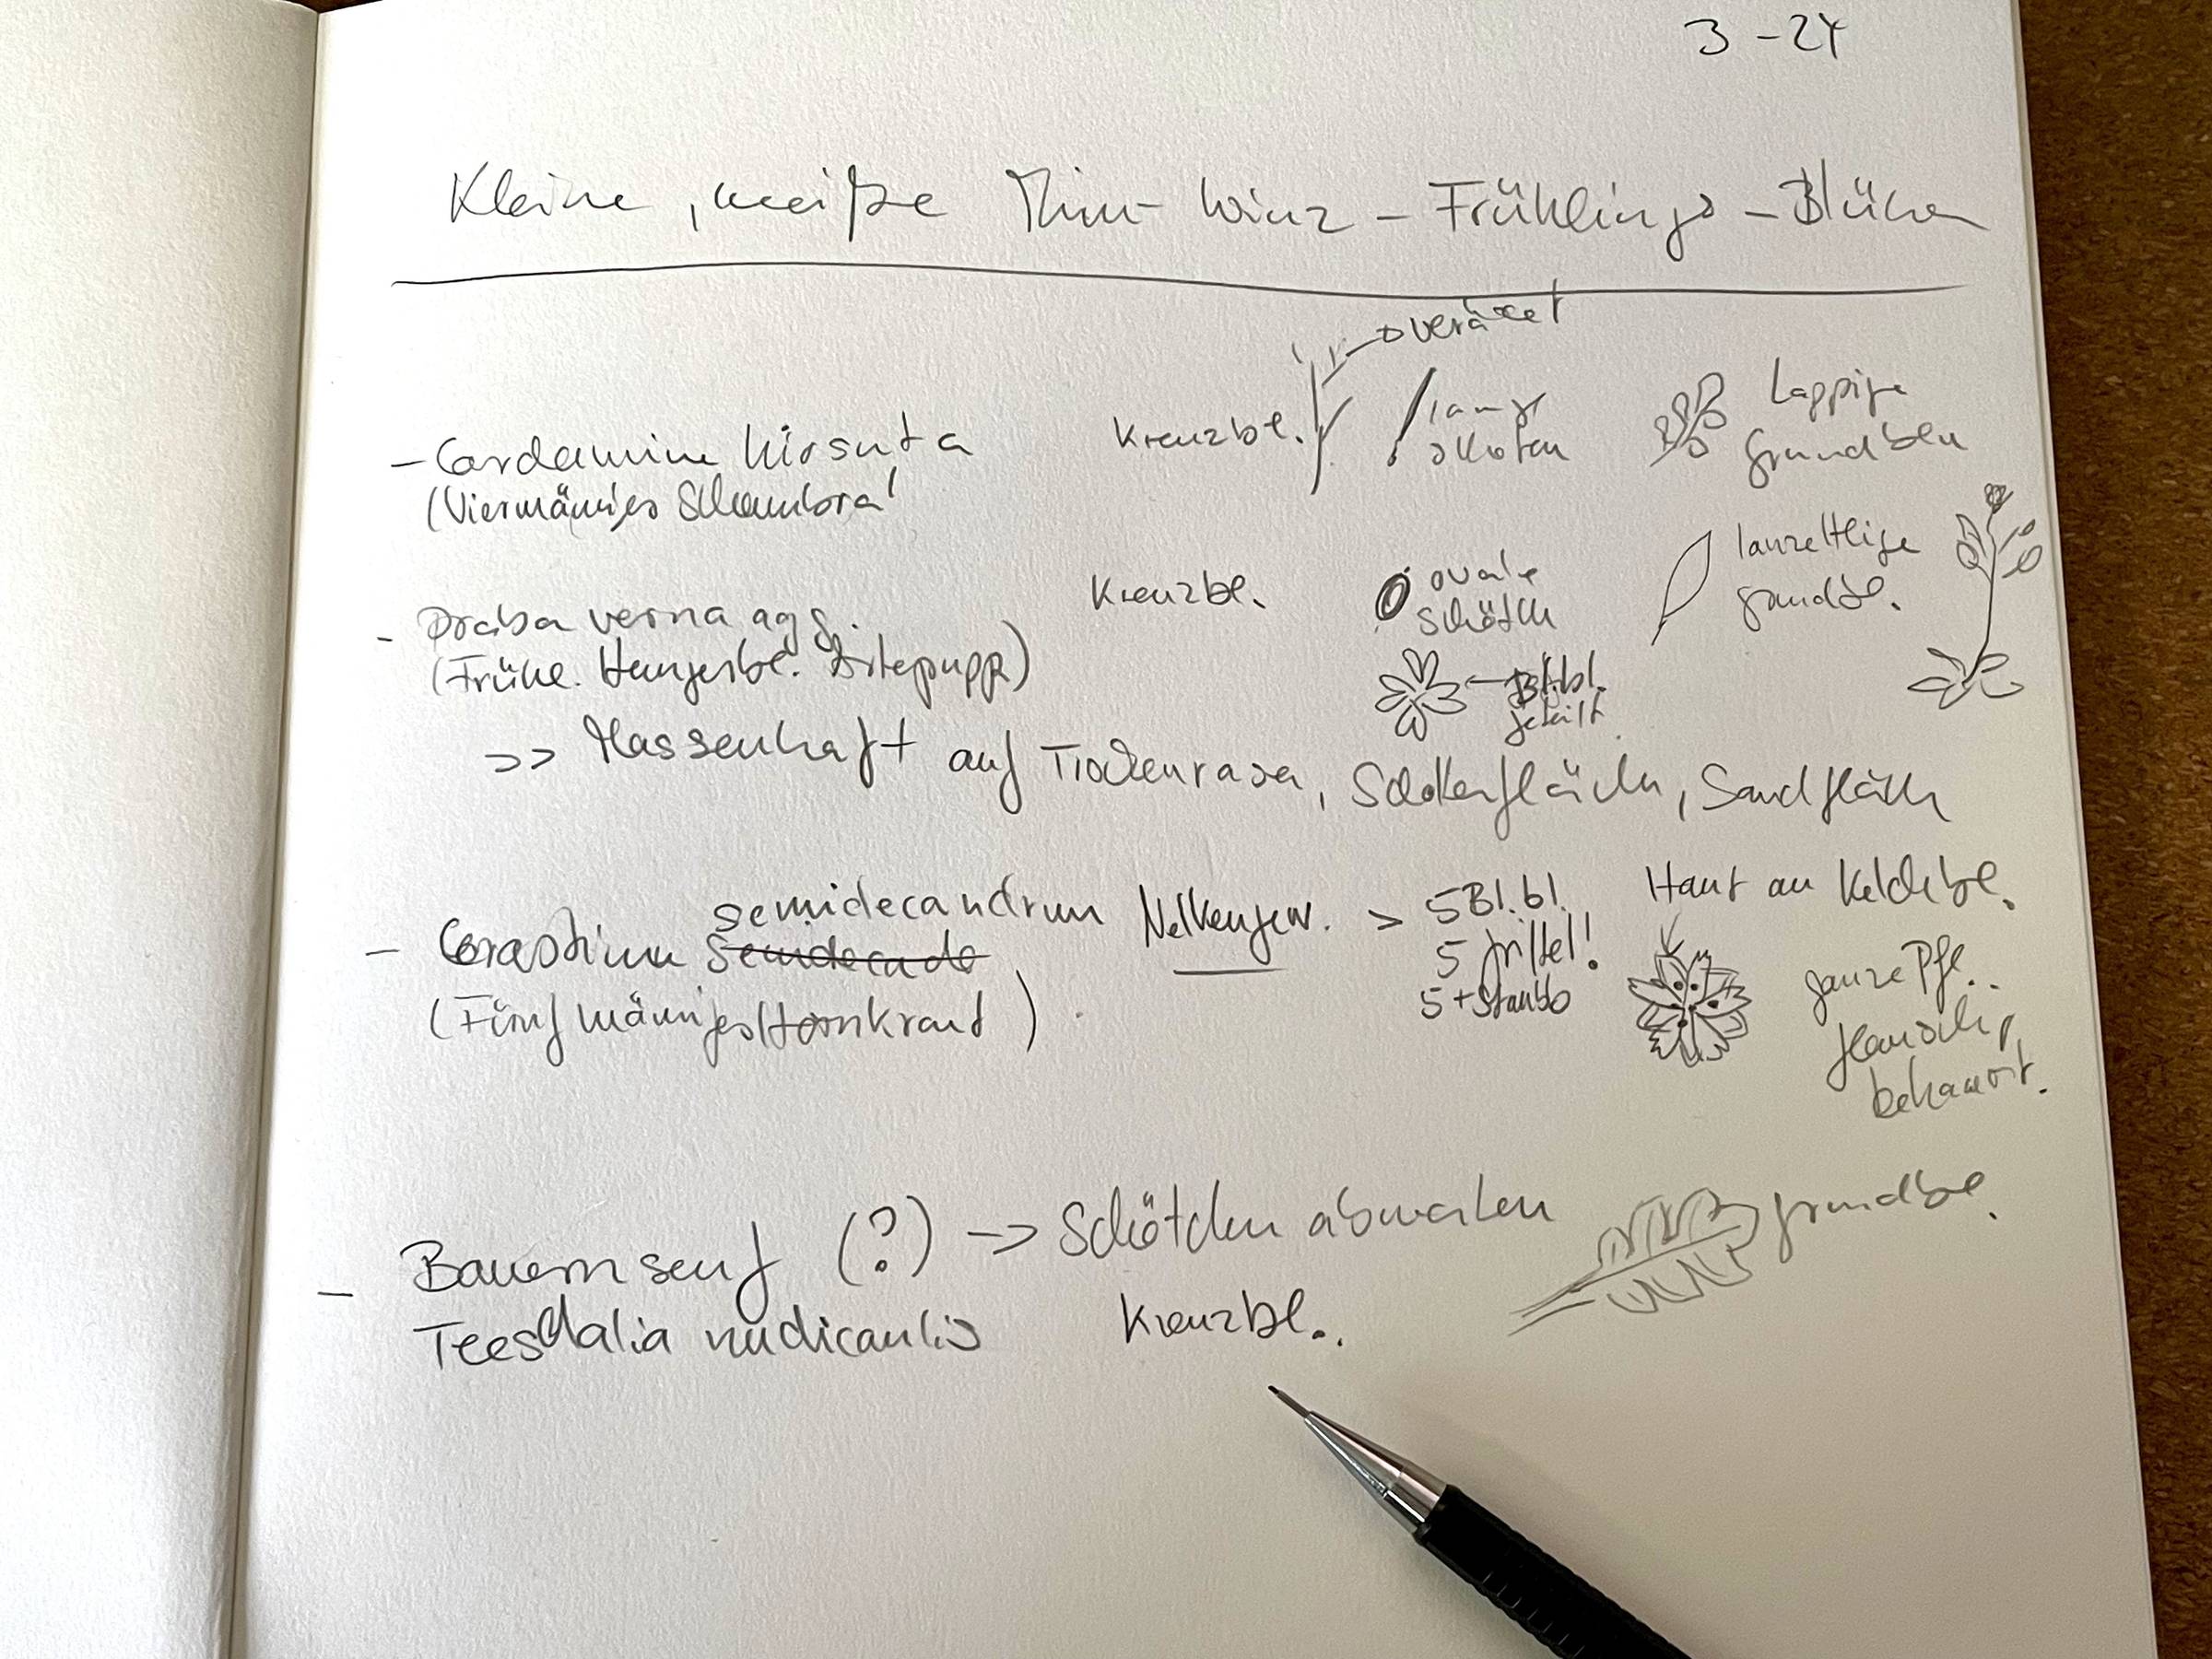 3 - 24
Kleine, weiße Mini- Winz - Frühlings - Blüher
verästelt
- Cardamine hirsuta
(Viermänniges Schaumkra'
Kreuzbl.
lange
Schoten
Lappige
Grundblr
- Draba verna agg.
(Frühl. Hungerbl. Artegrupp)
Kreuzbl.
ovale
Schötch
lanzettlige
grundbl.
Bl.bl.
geteilt
>> Massenhaft auf Trockenrasen, Schotterflächen, Sandfläch
- Cerastium semidecandrum
Semidecade
(Fünfmänniges Hornkraut)
Nelkengew. >
5 Bl.bl.
5 griffel!
5 + Staubb
Haut an Kelchbl.
ganze Pfl.
flauschig
behaart.
- Bauernsenf (?) -> Schötchen abwarten
grundbl.
Teesdalia nudicaulis
Kreuzbl.